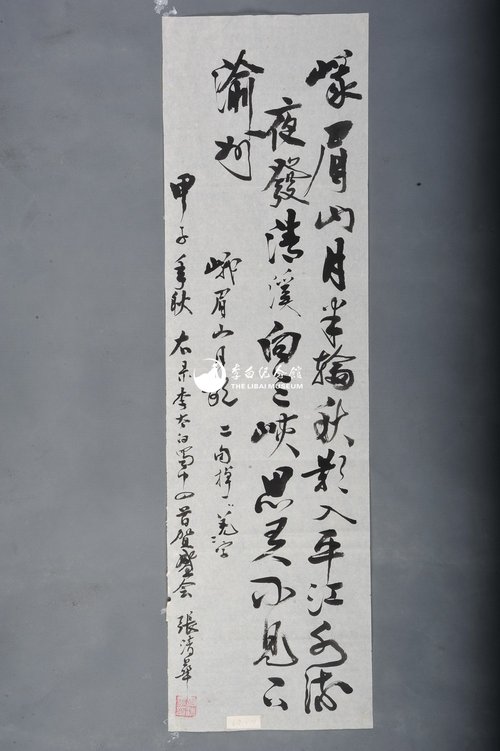 峨眉山月半輪秋影入平江水流
夜發清溪向三峽思君不見下
渝州
峨眉山月歌 二句掉羌字
甲子年秋 右录李太白蜀中四首贺盛会 張清華
李白纪念館
THE LIBAI MUSEUM